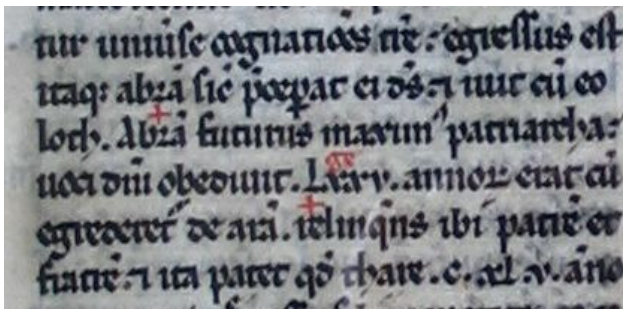 tur uniuͥse cognatiões tr̃e : egressus est
itaq; abrã sic̃ p̃cep̱at ei d̃s. ⁊ iuit cũ eo
loth. Abrã futurus maximꝰ patriarcha :
uoci dñi obediuit . Lxx·v. annoꝝ erat cũ
egrederet᷑ de arã . relinq̃ns ibi patrẽ et
fratrẽ : ⁊ ita patet qđ thare . c . xl . v . ãno